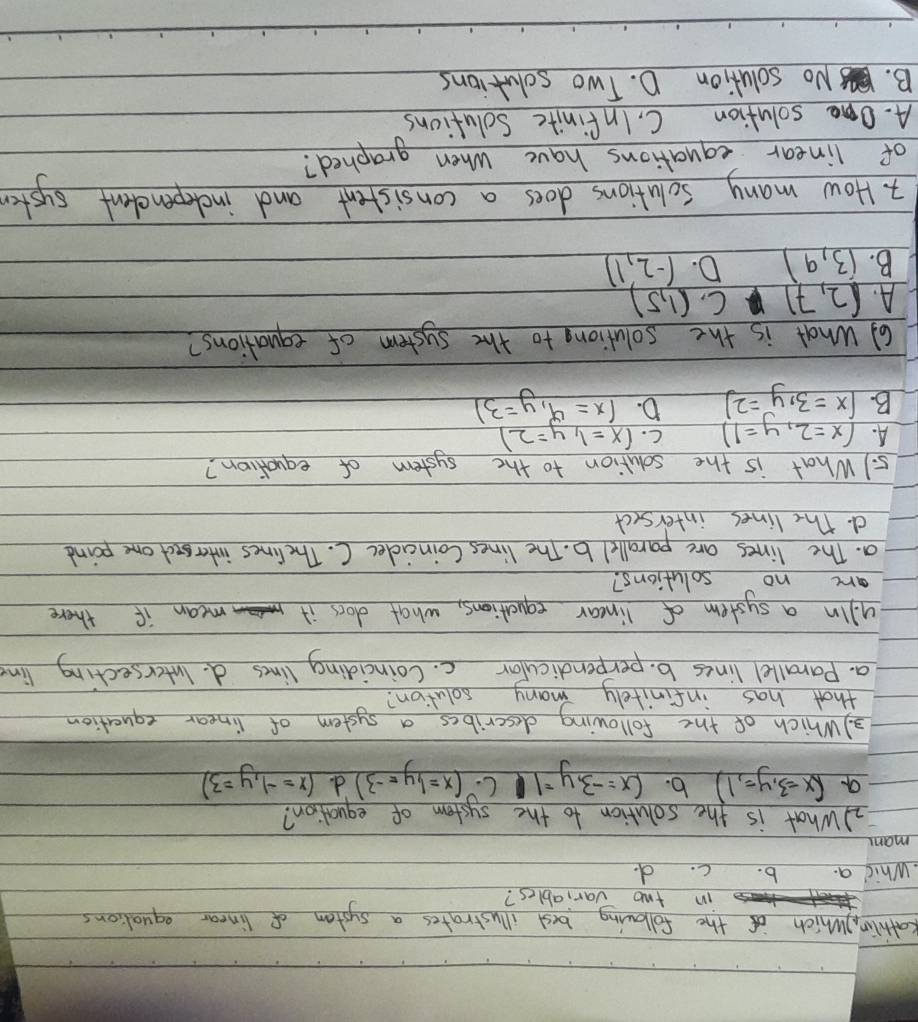 Kathilin
1) Which of the following best illustrates a system of linear equations
in two variables?
a. b. c. d.
2) What is the solution to the system of equation?
a. (x=3,y=1) b. (x=-3,y=1) c. (x=1,y=-3) d. (x=-1,y=3)
3) Which of the following describes a system of linear equation
that has infinitely many solution?
a. Parallel lines b. perpendicular c. Coinciding lines d. Intersecting line
4) In a system of linear equations, what does it mean if there
are no solutions?
a. The lines are parallel b. The lines Coincidec C. The lines intersect one point
d. The lines intersect
5.) What is the solution to the system of equation?
A. (x=2,y=1) C. (x=1,y=2)
B. (x=3,y=2) D. (x=4,y=3)
6) What is the solutions to the system of equations?
A. (2,7) C. (1,5)
B. (3,9) D. (-2,1)
7. How many solutions does a consistent and independent system
of linear equations have when graphed?
A. One solution C. Infinite Solutions
B. No solution D. Two solutions